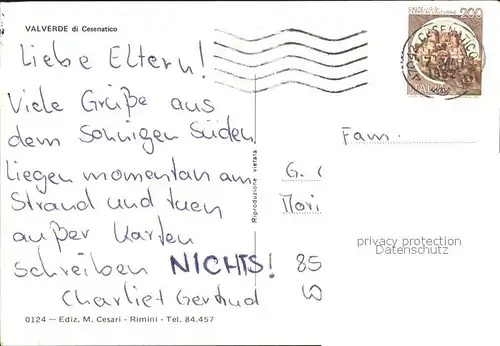 VALVERDE di Cesenatico
Liebe Eltern!
Viele Grüße aus
dem Sonnigen Süden.
Liegen momentan am
Strand und tuen
außer Karten
schreiben NICHTS!
Charlie + Gertrud
Fam.
G.
85
W
Riproduzione vietata
privacy protection
Datenschutz
200
CESENATICO
ITALIA
0124 — Ediz. M. Cesari - Rimini - Tel. 84.457